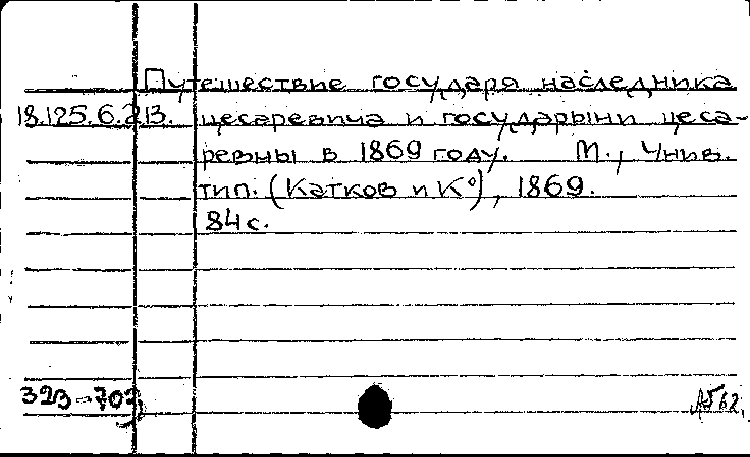 Путешествие государя наследника
18.125.6.213. цесаревича и государыни цеса-
ревны в 1869 году. М., Унив.
тип. (Катков и К°), 1869.
84 с.
323-702